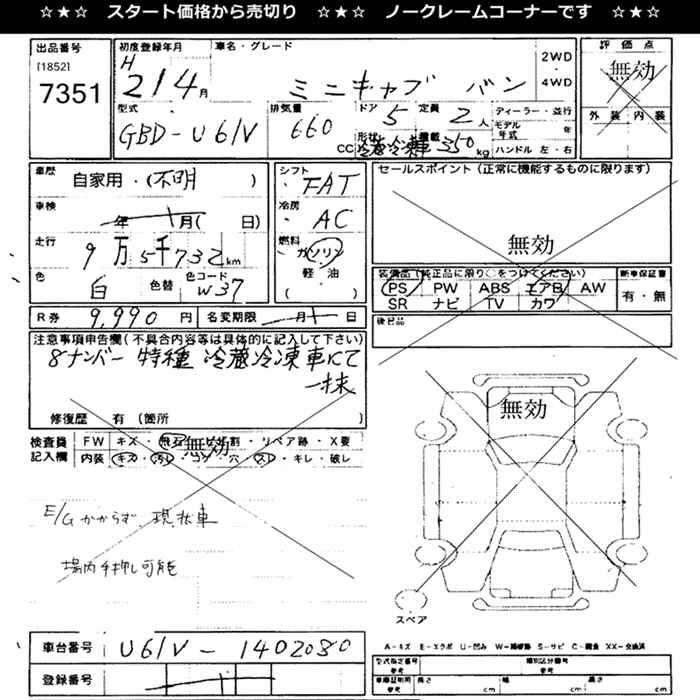 ☆★☆ スタート価格から売切り ☆★☆ ノークレームコーナーです ☆★☆
出品番号 初度登録年月 車名・グレード 2WD・4WD 評価点
[1852] H
7351 21 4月 ミニキャブ バン 無効
型式 排気量 ドア 定員 ディーラー・並行 外装 内装
GBD-U61V 660 CC 5 2人 モデル年式 年
形状 冷蔵冷凍車 積載 350kg ハンドル 左・右
車歴 自家用・(不明) シフト FAT セールスポイント (正常に機能するものに限ります)
車検 年 月( 日) 冷房 AC 無効
走行 9万5千732km 燃料 ガソリン・軽油 ( )
装備品(純正品に限り○をつけてください) 新車保証書
色 白 色替 色コード W37 PS PW ABS エアB AW 有・無
SR ナビ TV カワ
R券 9,990円 名変更期限 月 日 後日品
注意事項申告欄(不具合内容等は具体的に記入して下さい)
8ナンバー 特種 冷蔵冷凍車にて
一抹
修復歴 有 (箇所 ) 無効
検査員記入欄 FW キズ・飛石・ヒビ割・リペア跡・X要 無効
内装 キズ・汚れ・コゲ・穴・スレ・キレ・破レ
E/Gかからず 現状車
場内手押し可能
スペア
車台番号 U61V-1402080
A-キズ E-エクボ U-凹み W-補修跡 S-サビ C-腐食 XX-交換済
登録番号
型式指定番号 参考 類別区分番号 参考
車庫証明用 参考 長さ cm 幅 cm 高さ cm